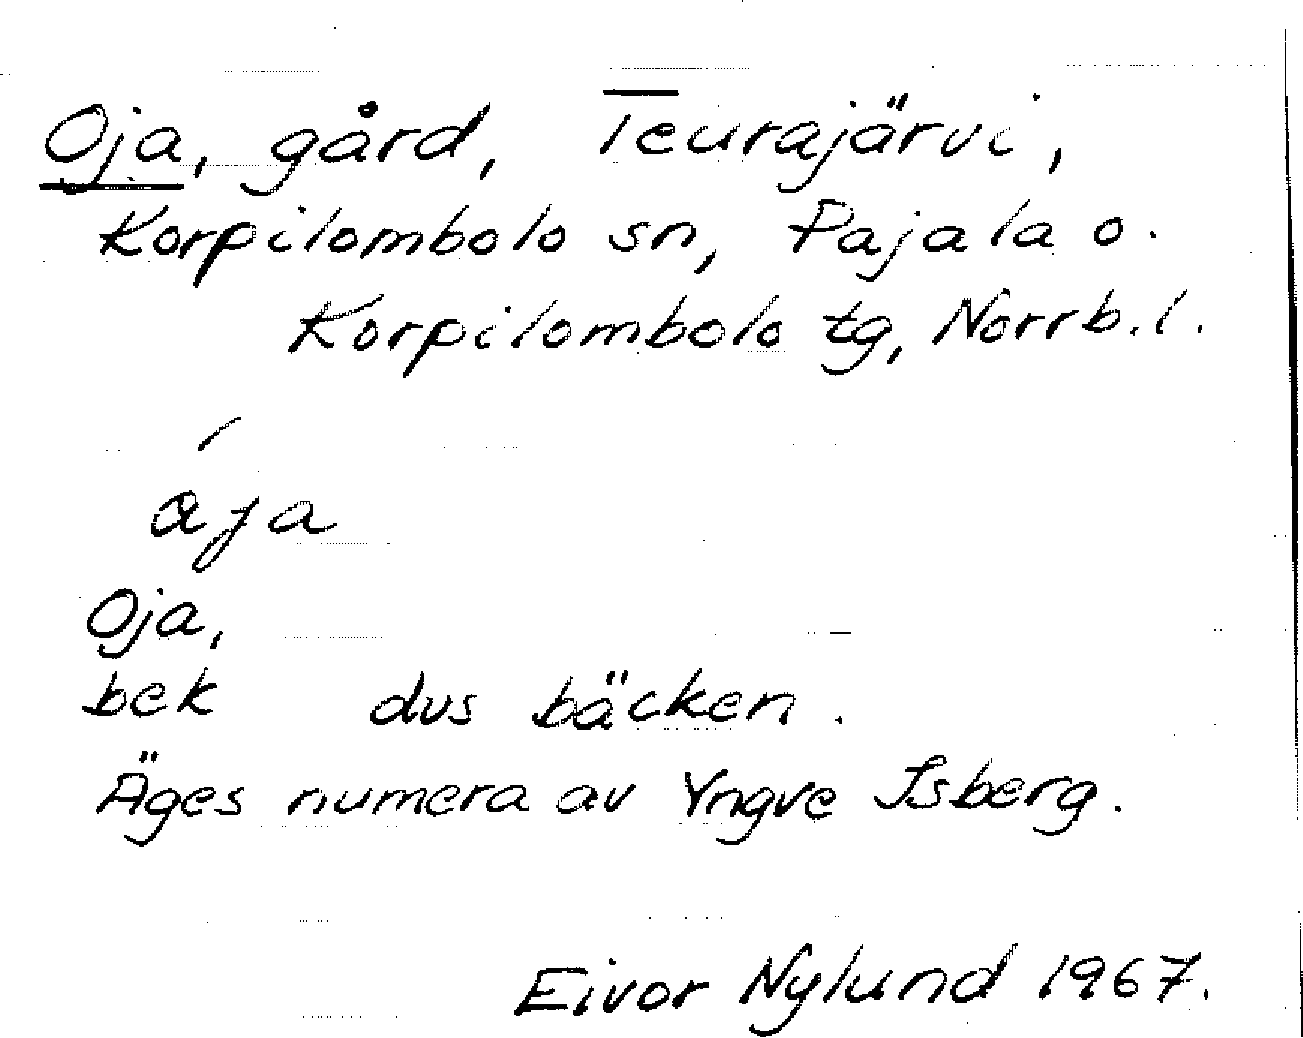 Oja, gård, Teurajärvi,
Korpilombolo sn, Pajala o.
Korpilombolo tg, Norrb. l.
´
aja
Oja,
bek dvs bäcken.
Äges numera av Yngve Isberg.
Eivor Nylund 1967.